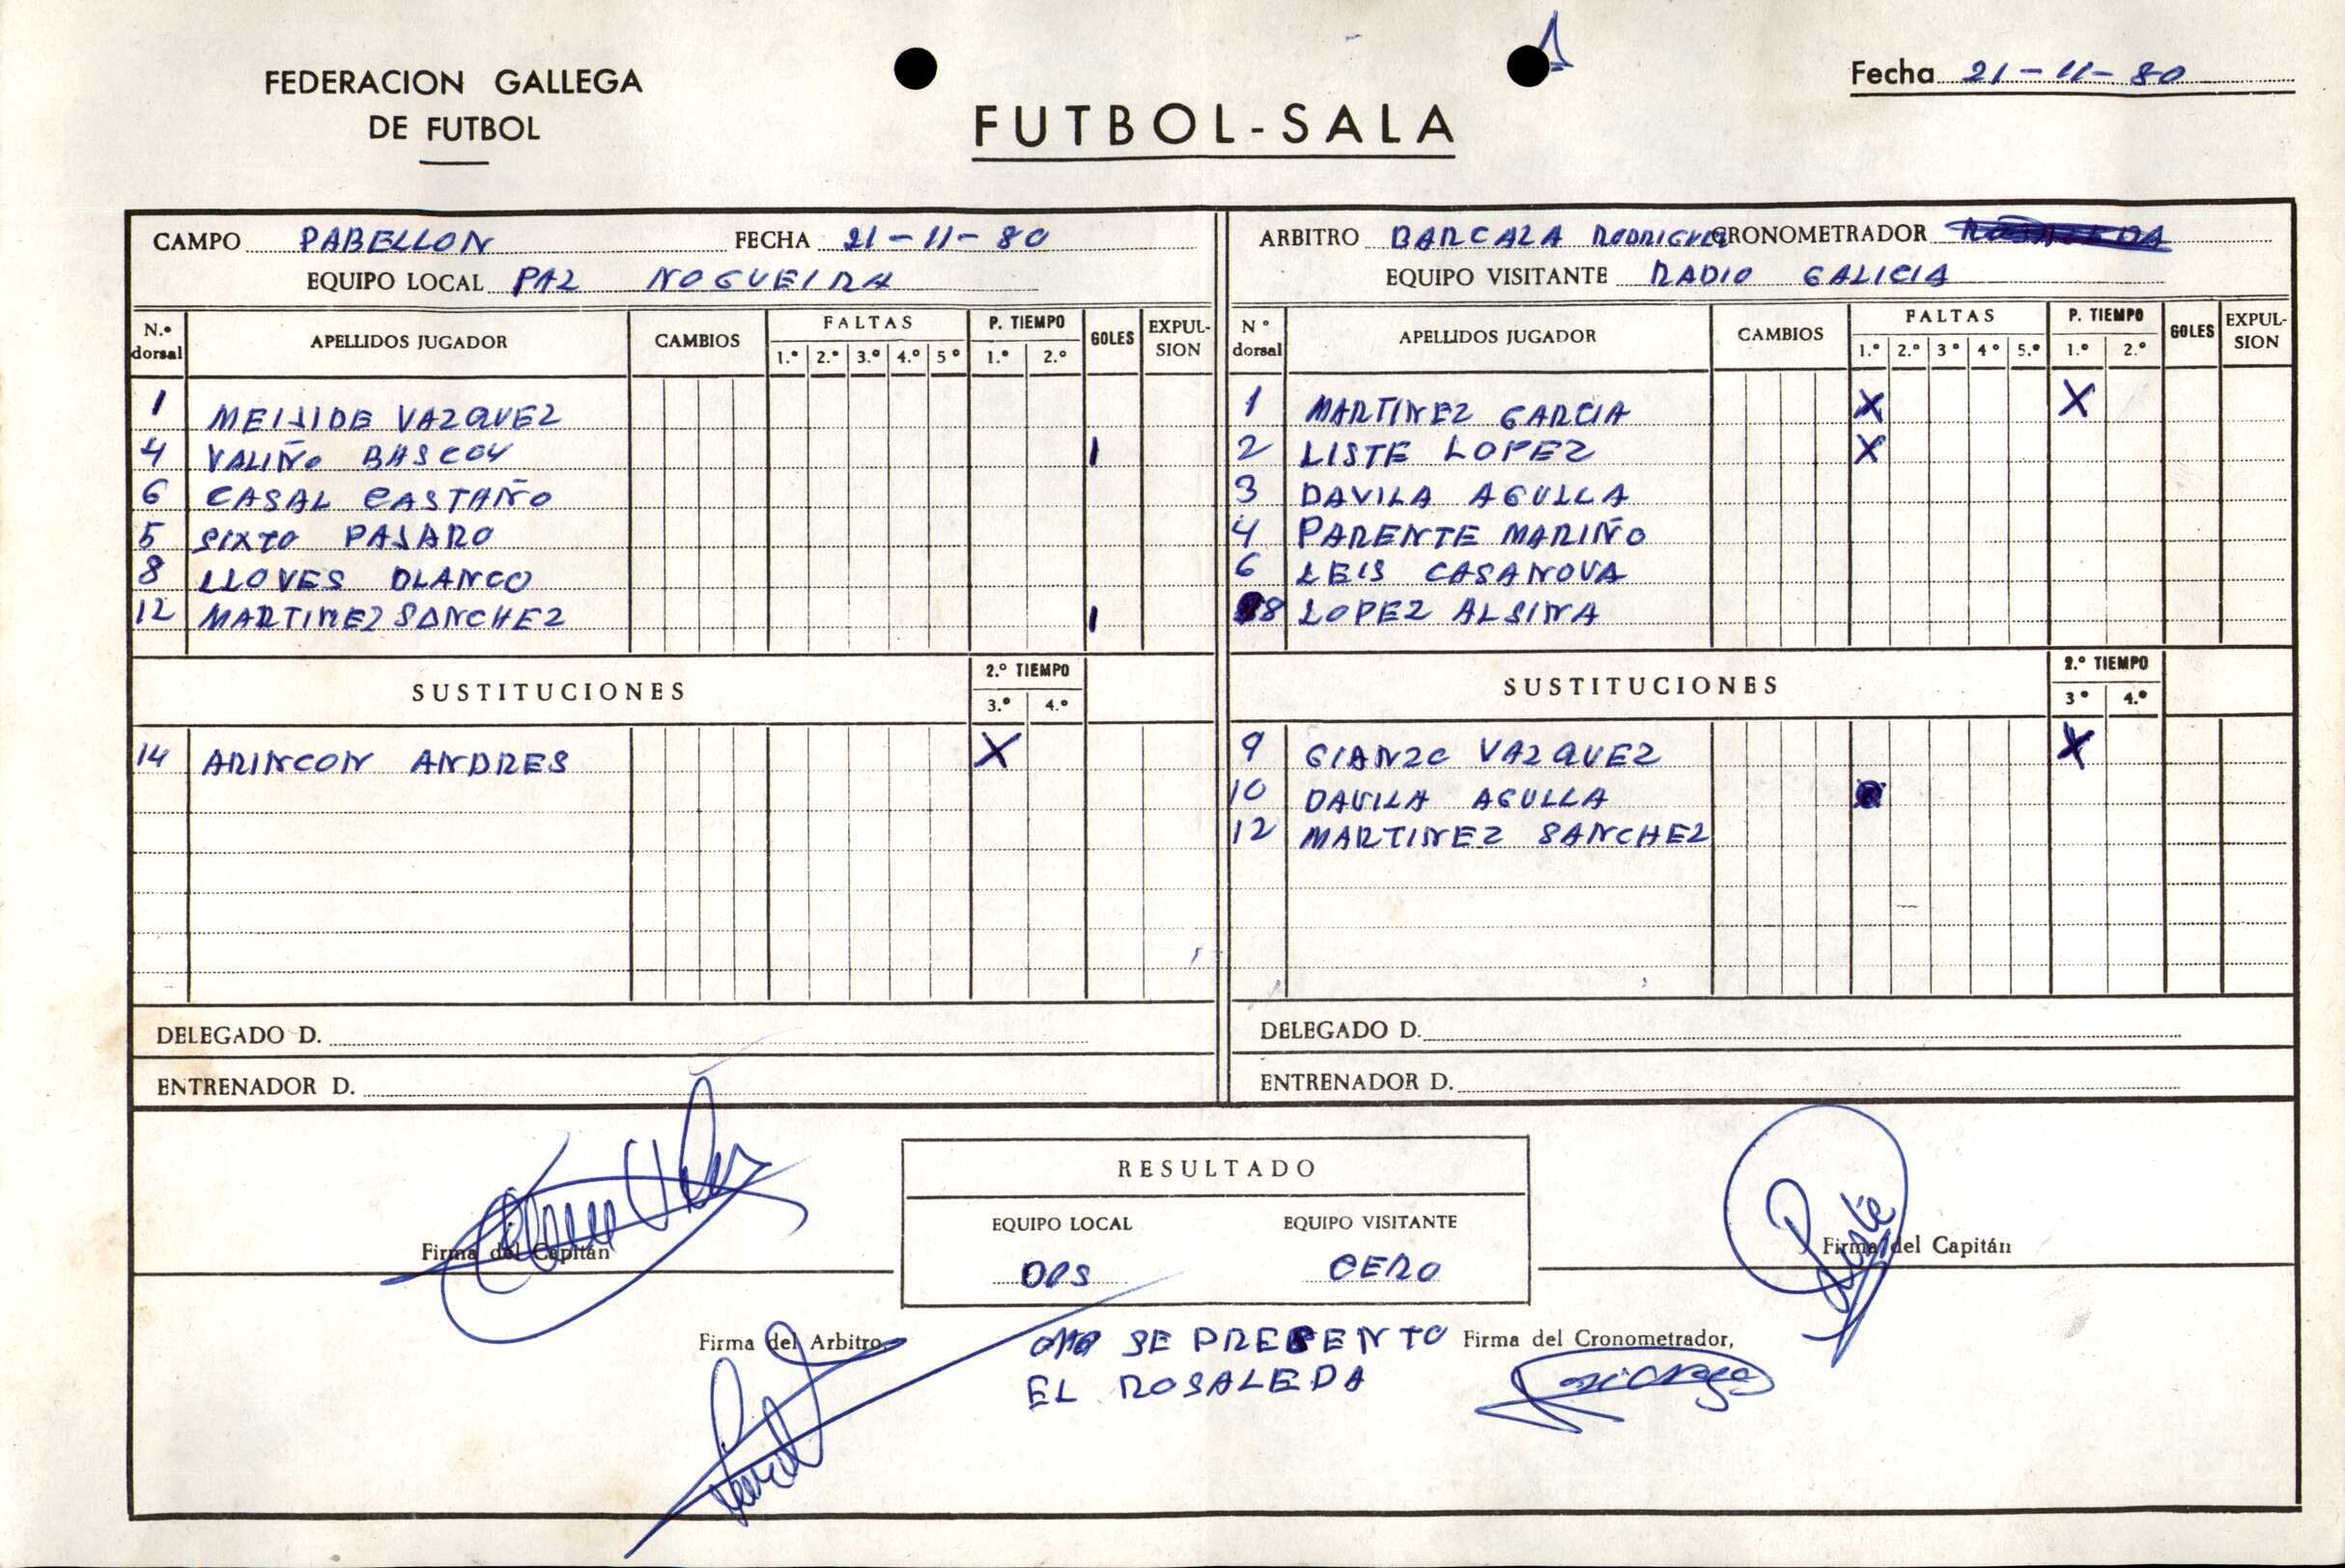 FEDERACION GALLEGA
DE FUTBOL
FUTBOL-SALA
Fecha 21-11-80
CAMPO PABELLON FECHA 21-11-80
EQUIPO LOCAL PAZ NOGUEIRA
N.º dorsal APELLIDOS JUGADOR CAMBIOS FALTAS 1.º 2.º 3.º 4.º 5º P. TIEMPO 1.º 2.º GOLES EXPUL-SION
1 MEIJIDE VAZQUEZ
4 VALIÑO BASCOY 1
6 CASAL CASTAÑO
5 SIXTO PAJARO
8 LLOVES BLANCO
12 MARTINEZ SANCHEZ 1
SUSTITUCIONES 2.º TIEMPO 3.º 4.º
14 ARINCON ANDRES X
DELEGADO D.
ENTRENADOR D.
ARBITRO BARCALA RODRIGUEZ CRONOMETRADOR
EQUIPO VISITANTE RADIO GALICIA
Nº dorsal APELLIDOS JUGADOR CAMBIOS FALTAS 1.º 2.º 3º 4º 5.º P. TIEMPO 1.º 2.º GOLES EXPUL-SION
1 MARTINEZ GARCIA X X
2 LISTE LOPEZ X
3 DAVILA AGULLA
4 PARENTE MARIÑO
6 LEIS CASANOVA
8 LOPEZ ALSINA
SUSTITUCIONES 2.º TIEMPO 3º 4.º
9 CIANZO VAZQUEZ X
10 DAVILA AGULLA
12 MARTINEZ SANCHEZ
DELEGADO D.
ENTRENADOR D.
RESULTADO
EQUIPO LOCAL EQUIPO VISITANTE
DOS CERO
Firma del Capitán
Firma del Capitán
Firma del Arbitro,
SE PRESENTO
EL ROSALEDA
Firma del Cronometrador,